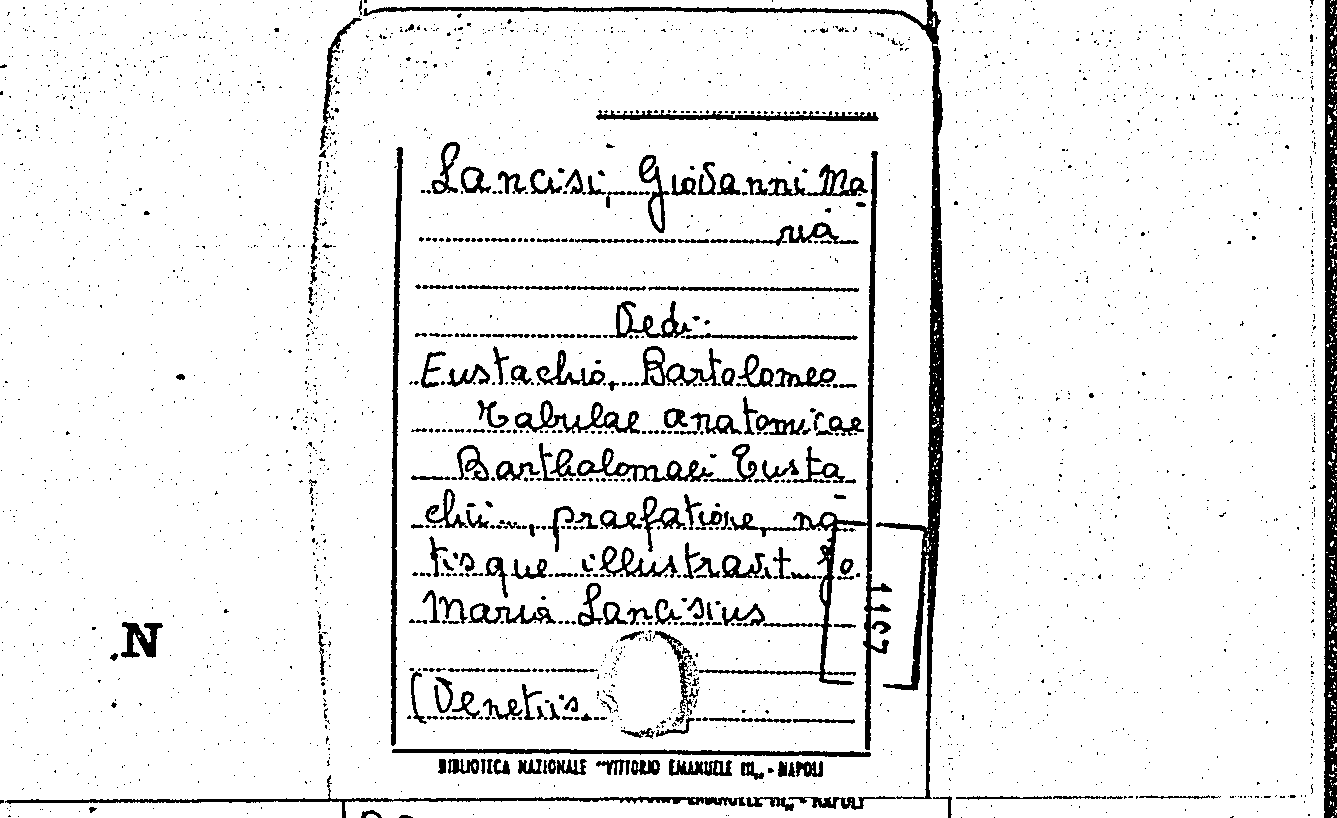 Lancisi, Giovanni Ma-
ria
Vedi:
Eustachio, Bartolomeo
Tabulae anatomicae
Bartholomaei Eusta
chii..., praefatione, no-
tisque illustravit Jo.
Maria Lancisius
1167
.N
(Venetiis.
BIBLIOTECA NAZIONALE "VITTORIO EMANUELE III„ - NAPOLI
EMANUELE III„ - NAPOLI